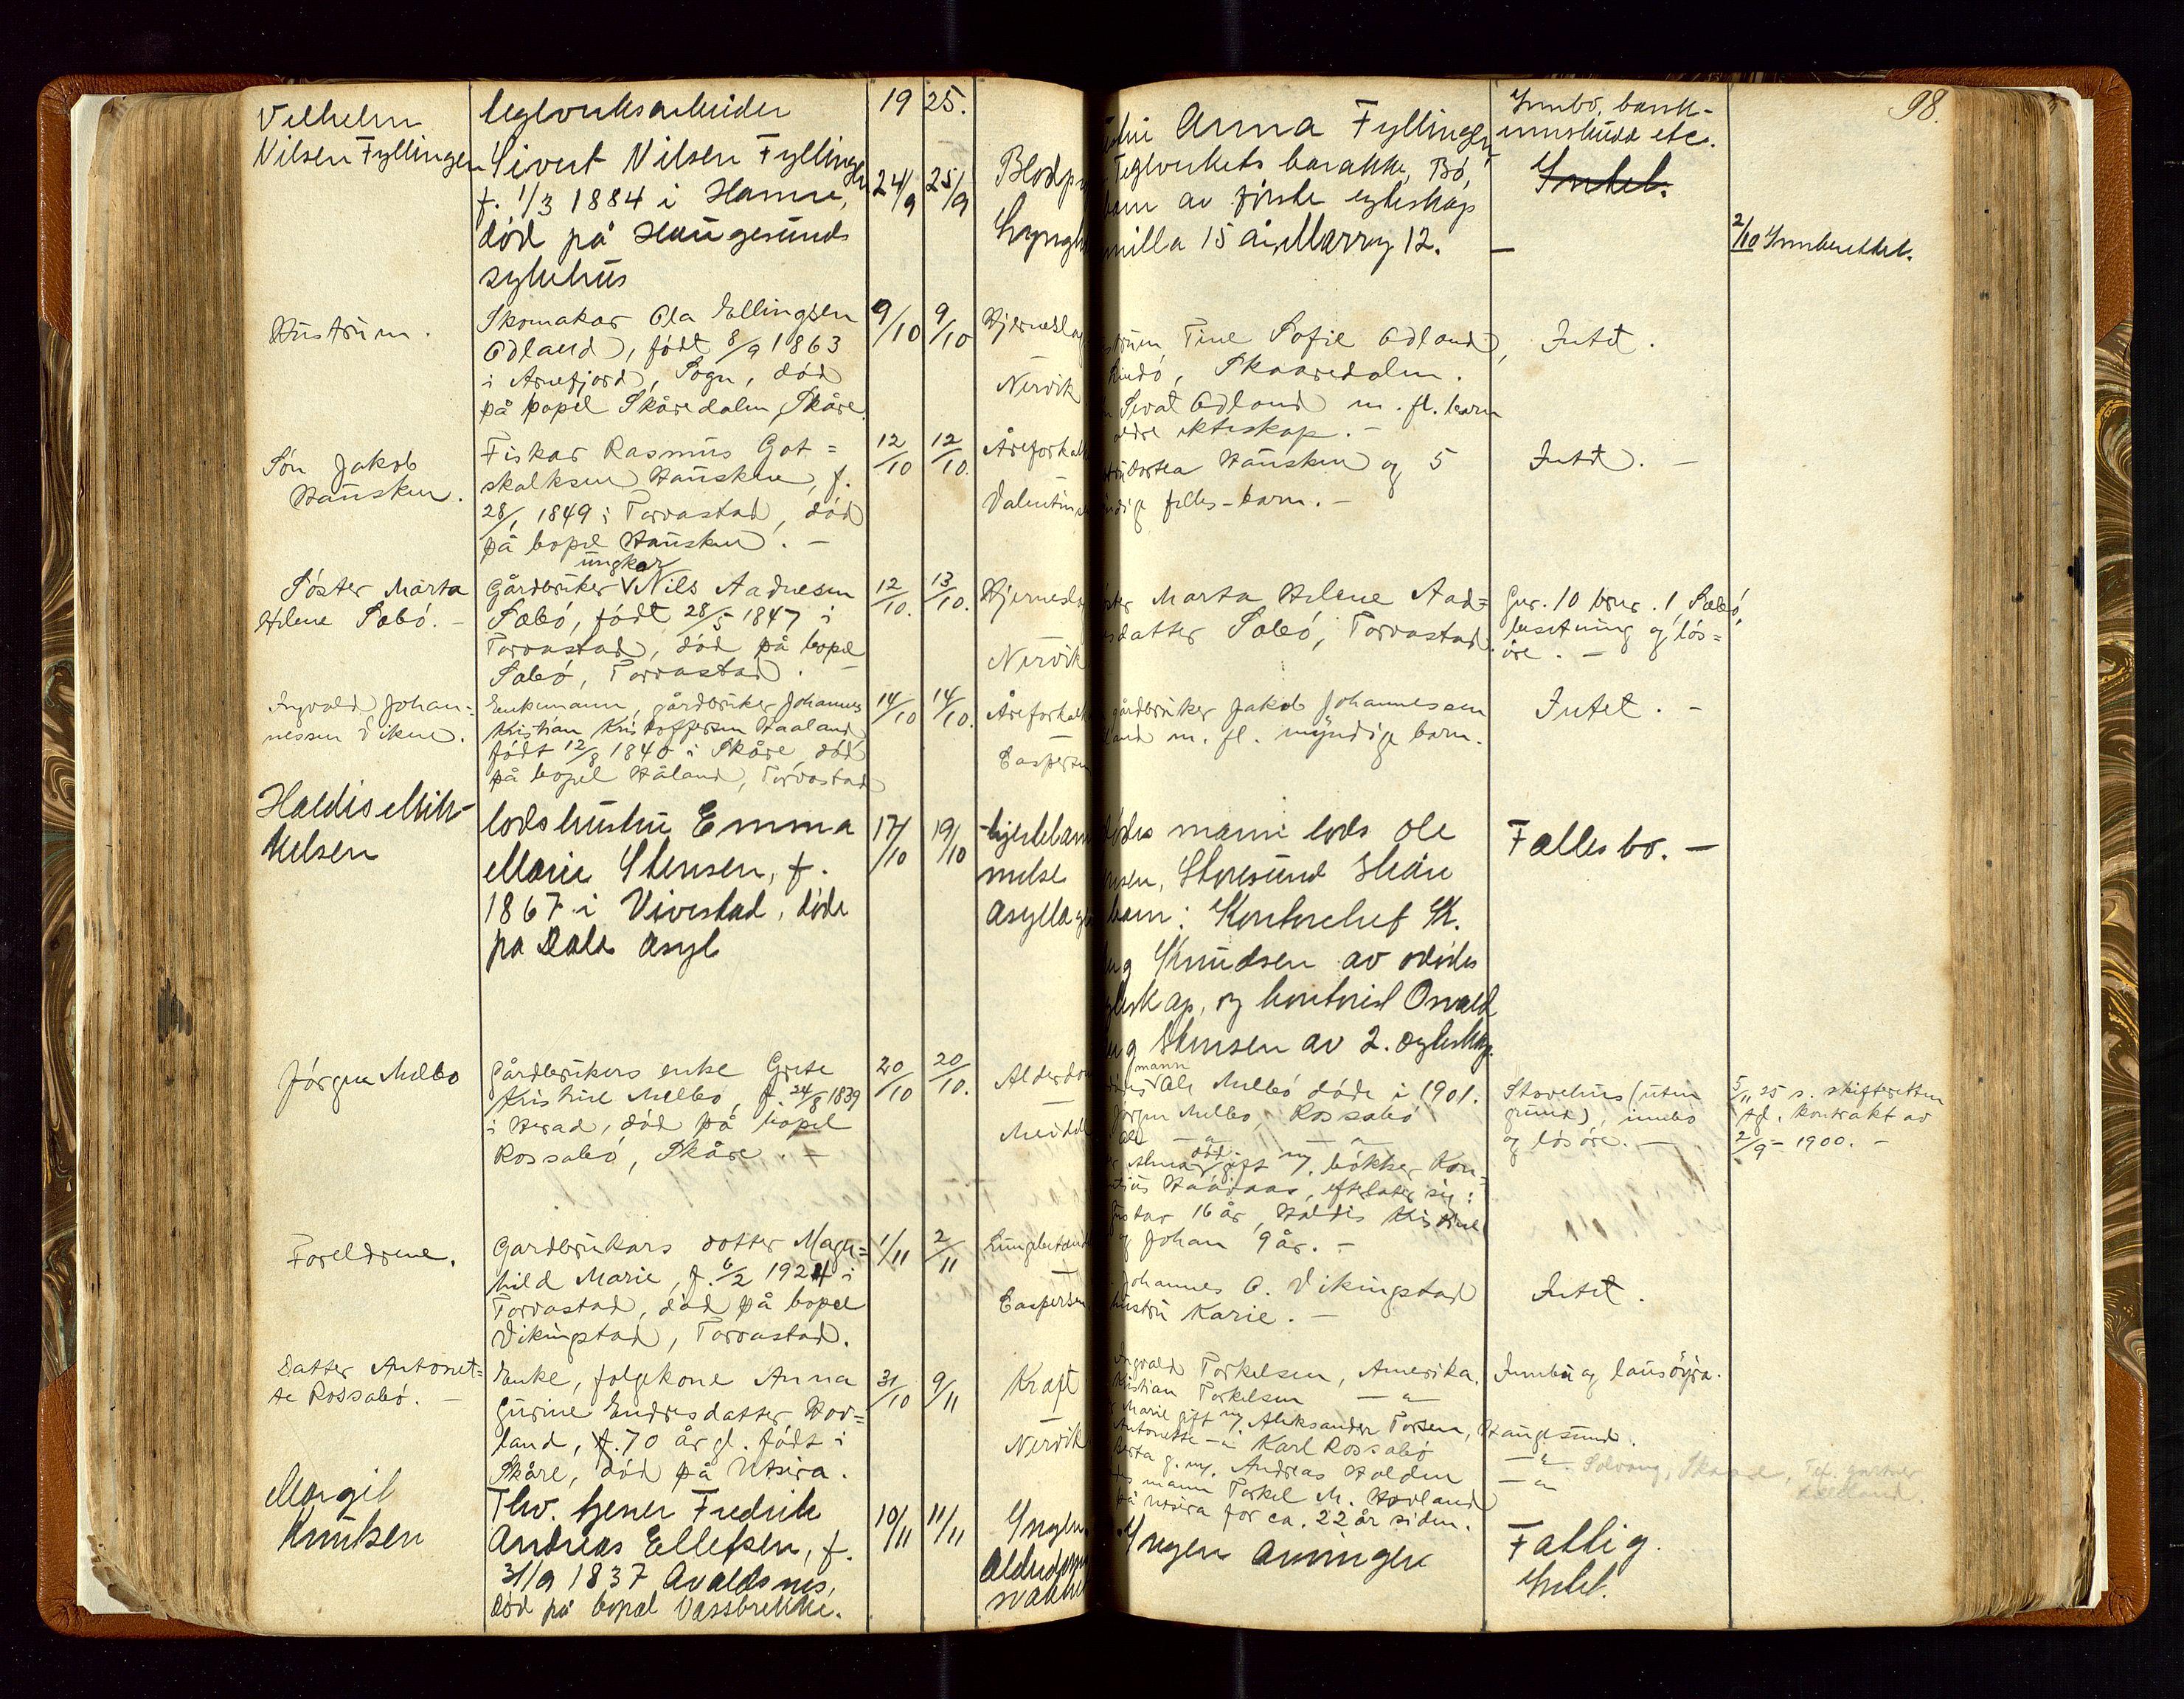 98.
19 25.
Vilhelm
Nilsen Fyllingen
teglverksarbeider
Sivert Nilsen Fyllingen
f. 1/3 1884 i Hamre,
død på Haugesunds
sykehus
24/9 25/9
Blodp
Lyngh
Anna Fyllingen
Teglverkets barakke, Bø,
barn av første egteskap
milla 15 år, Marry 12.
Innbo, bank-
innskudd etc.
Intet.
—
2/10 Innberettet.
Hustruen.
Skomakar Ola Ellingsen
Ødland, født 8/9 1863
i Arnefjord, Sogn, død
på bopel Skåredalen, Skåre.
9/10 9/10
Hjerneslag
Nervik
Tine Sofie Ødland,
Skaaredalen.
Sivat Ødland m. fl. barn
ekteskap. -
Intet.
Søn Jakob
Hausken.
Fiskar Rasmus Got=
skalksen Hausken, f.
28/1 1849 i Torvastad, død
på bopel Hausken. -
12/10 12/10.
Åreforkalk
Valentin
Hausken og 5
felles-barn. -
Intet. -
Søster Marta
Helene Sæbø. -
ungkar
Gårdbruker Nils Aadnesen
Sæbø, født 28/5 1847 i
Torvastad, død på bopel
Sæbø, Torvastad. -
12/10. 13/10.
Hjernesla
Nervik
Marta Helene Aad=
sdatter Sæbø, Torvastad.
Gnr. 10 brnr. 1 Sæbø,
besetning og løs=
øre. -
Ingvald Johan=
nessen Viken.
Enkemann, gårdbruker Johannes
Kristian Kristoffersen Haaland
født 12/8 1840 i Skåre, død
på bopel Håland, Torvastad
14/10 14/10.
Åreforkalk
Caspersen
gårdbruker Jakob Johannessen
land m. fl. myndige barn.
Intet. -
Haldis Mik-
kelsen
lodshustru Emma
Marie Stensen, f.
1867 i Vivestad, døde
på Dale asyl
17/10 19/10
hjertelam
melse
asyllæge
mann lods Ole
Storesund Skåre
barn: Kontorchef K.
Knudsen av avdødes
og kontorist Osvald
Stensen av 2. egteskap.
Fællesbo. —
Jørgen Melbø
Gårdbrukers enke Grete
Kristine Melbø, f. 24/8 1839
i Herad, død på bopel
Rossabø, Skåre. -
20/10 20/10.
Alderdom
mann
Ole Melbø døde i 1901.
Jørgen Melbø, Rossabø
død
Alma gift m. bøkker Kon-
Haaaas, efterlater sig:
Gustav 16 år, Haldis Kristine
og Johan 9 år. -
Stovehus (uten
grund), innbo
og løsøre. -
5/11 25 s. skifteretten
kontrakt av
2/9 - 1900. -
Foreldrene.
Gardbrukars dotter Magn=
hild Marie, f. 6/2 1924 i
Torvastad, død på bopel
Vikingstad, Torvastad.
1/11 2/11
Lungebetænd
Caspersen
Johannes O. Vikingstad
hustru Karie. -
Intet.
Datter Antonet=
te Rossabø. -
Enke, folgekone Anna
Gurine Endresdatter Hov=
land, f. 70 år gl. født i
Skåre, død på Utsira.
31/10 9/11
Kræft
Nervik
Ingvald Torkelsen, Amerika.
Kristian Torkelsen — " —
Marie gift m. Aleksander Torsen, Haugesund.
Antonette — " — Karl Rossabø — " —
Berta g. m. Andreas Holden — " —
mann Torkel M. Hovland
på Utsira for ca. 22 år siden.
Innbu og lausøyra.
Solvang, Skaare,
Margit
Knutsen
Thv. tjener Fredrik
Andreas Ellefsen, f.
31/9 1837 Avaldsnes,
død på bopæl Vassbrekke.
10/11 11/11
Ingen
Alderdoms
svakhet
Ingen arvinger
Fattig.
Intet.